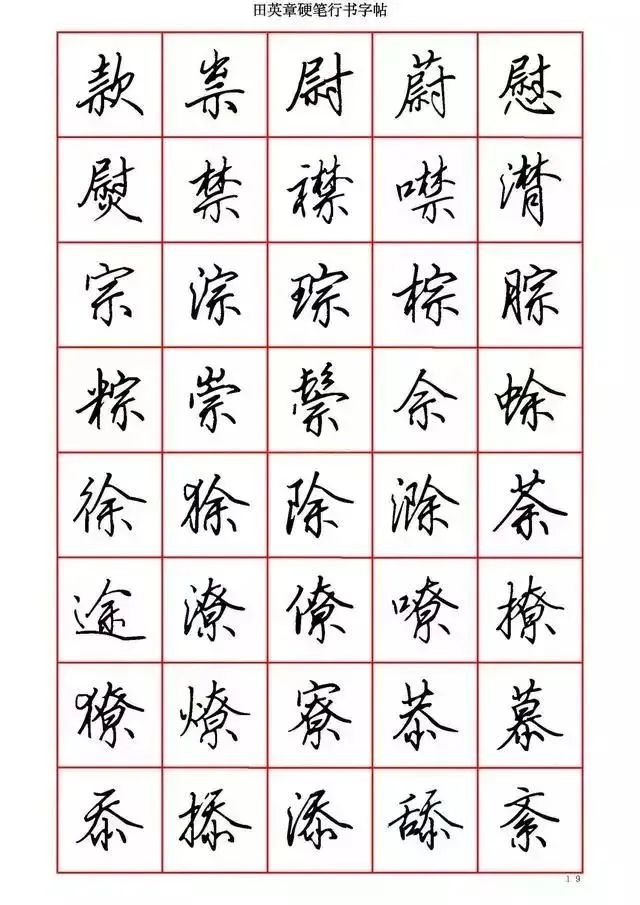 田英章硬笔行书字帖
款 祟 尉 蔚 慰
熨 禁 襟 噤 潸
宗 淙 琮 棕 腙
粽 崇 鬃 佘 蜍
徐 狳 除 滁 荼
途 潦 僚 嘹 撩
獠 燎 寮 恭 慕
忝 掭 添 舔 紊
19